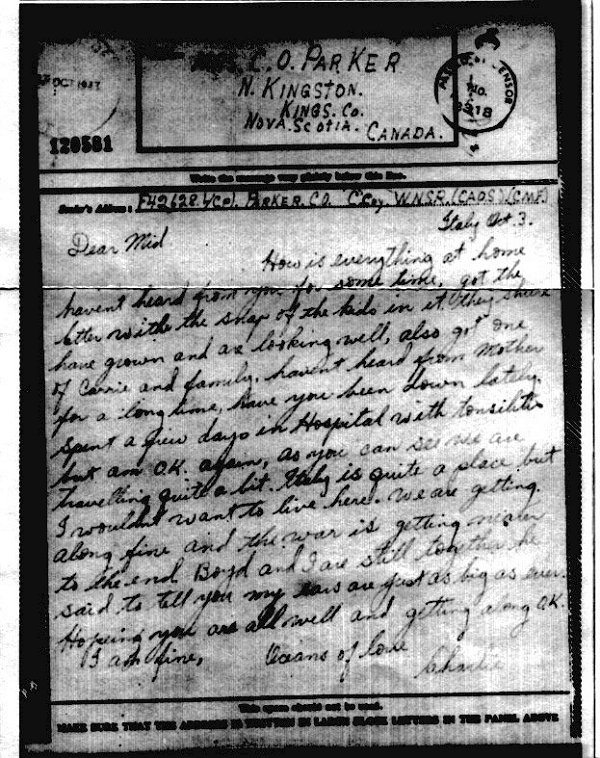 OCT 1943
C. O. PARKER
N. KINGSTON.
KINGS. CO.
NOVA. SCOTIA. CANADA.
CENSOR
NO.
120581
Write the message very plainly below this line.
Sender's Address: F42628 (Cpl) PARKER. C.O. "C" Coy W.N.S.R. (CAOS) (C.M.F)
Italy Oct. 3.
Dear Mid
How is everything at home
havent heard from you for some time, got the
letter with the snap of the kids in it. they sure
have grown and are looking well, also got one
of Carrie and family, havent heard from Mother
for a long time, have you been down lately.
spent a few days in Hospital with tonsilitis
but am O.K. again, as you can see we are
travelling quite a bit. Italy is quite a place but
I wouldnt want to live here. we are getting
along fine and the war is getting nearer
to the end Boyd and I are still together he
said to tell you my ears are just as big as ever.
Hopeing you are all well and getting along O.K.
I am fine, Oceans of love
Charlie
This space should not be used.
MAKE SURE THAT THE ADDRESS IS WRITTEN IN LARGE BLOCK LETTERS IN THE PANEL ABOVE